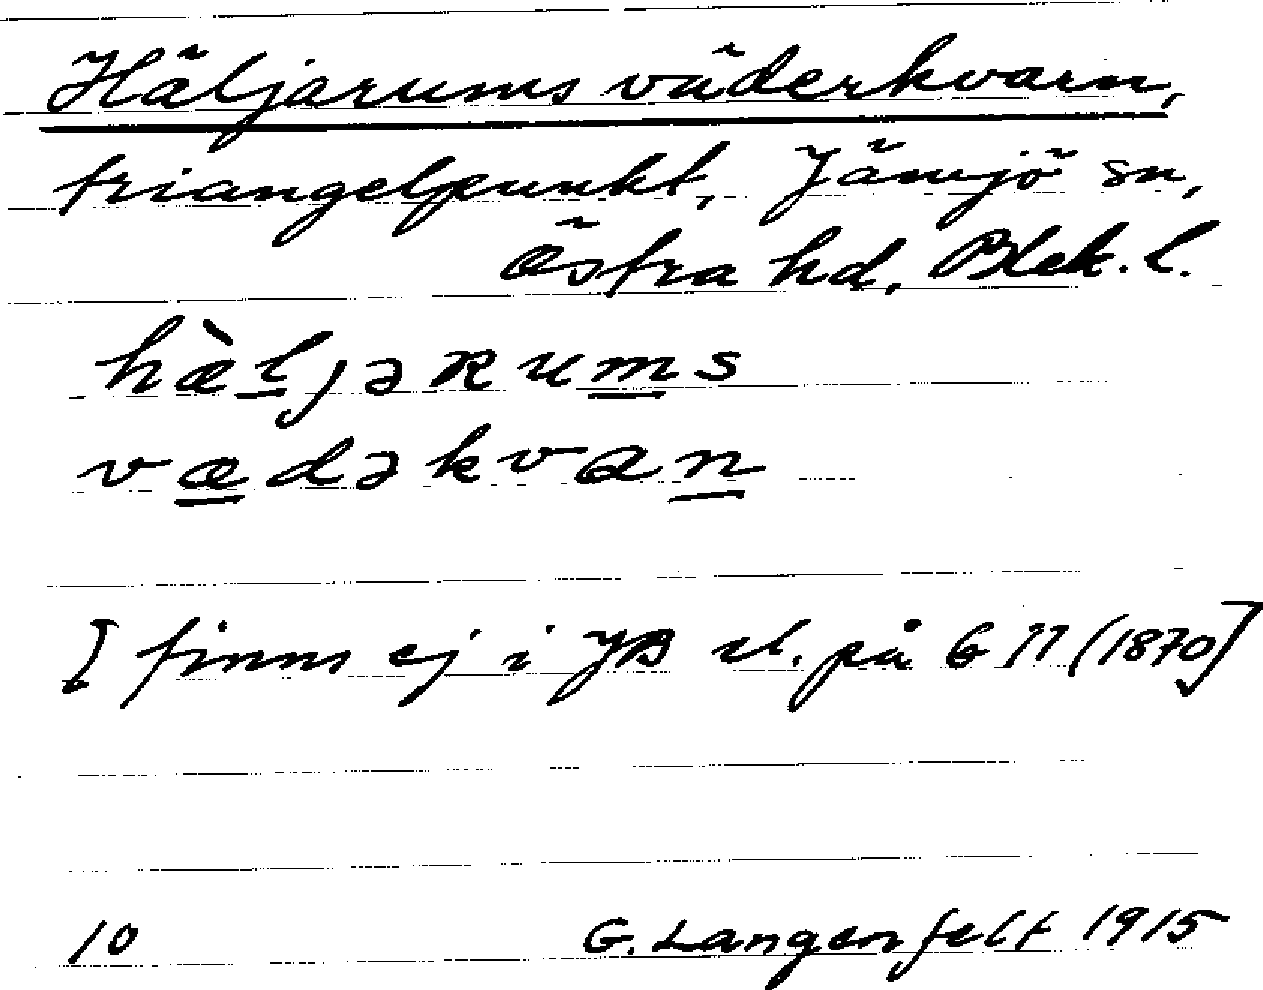 Häljarums väderkvarn,
triangelpunkt, Jämjö sn,
Östra hd, Blek. l.
hæ̀ljəʀums
vædəkvan
[finns ej i JB el. på G 11 (1870)]
10 G. Langenfelt 1915